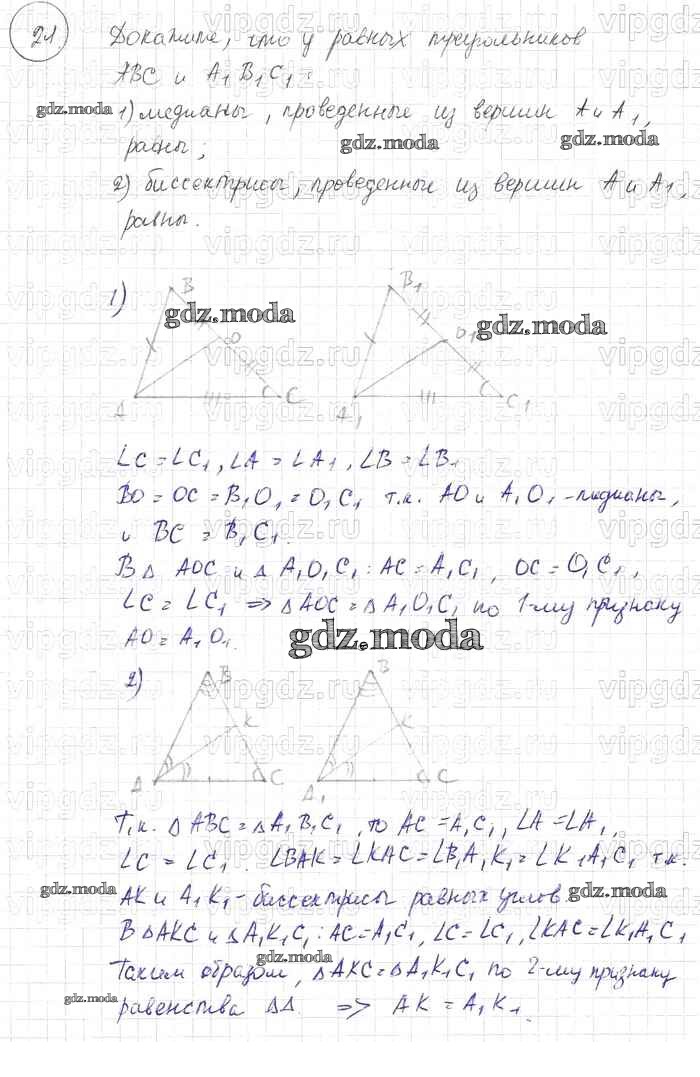 21. Докажите, что у равных треугольников
ABC и A₁B₁C₁:
gdz.moda 1) медианы, проведенные из вершин A и A₁,
равны; gdz.moda gdz.moda
2) биссектрисы, проведенные из вершин A и A₁,
равны.
1) B B₁
gdz.moda gdz.moda
O O₁
A C C A₁ C C₁
∠C = ∠C₁, ∠A = ∠A₁, ∠B = ∠B₁
BO = OC = B₁O₁ = O₁C₁ т.к. AO и A₁O₁ - медианы,
и BC = B₁C₁.
В △ AOC и △ A₁O₁C₁: AC = A₁C₁, OC = O₁C₁,
∠C = ∠C₁ => △AOC = △A₁O₁C₁ по 1-му признаку
AO = A₁O₁.
gdz.moda
2) B B
K K
A C A₁ C
Т.к. △ ABC = △A₁B₁C₁, то AC = A₁C₁, ∠A = ∠A₁,
∠C = ∠C₁. ∠BAK = ∠KAC = ∠B₁A₁K₁ = ∠K₁A₁C₁ т.к.
gdz.moda AK и A₁K₁ - биссектрисы равных углов. gdz.moda
В △AKC и △A₁K₁C₁: AC = A₁C₁, ∠C = ∠C₁, ∠KAC = ∠K₁A₁C₁
Таким образом, △AKC = △A₁K₁C₁ по 2-му признаку
gdz.moda
равенства △△. => AK = A₁K₁.